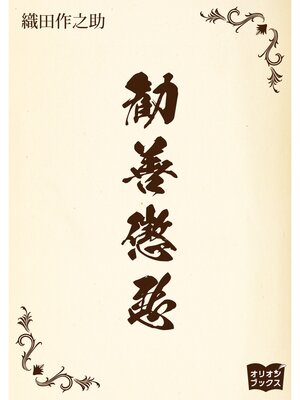 織田作之助
勧善懲悪
オリオン
ブックス